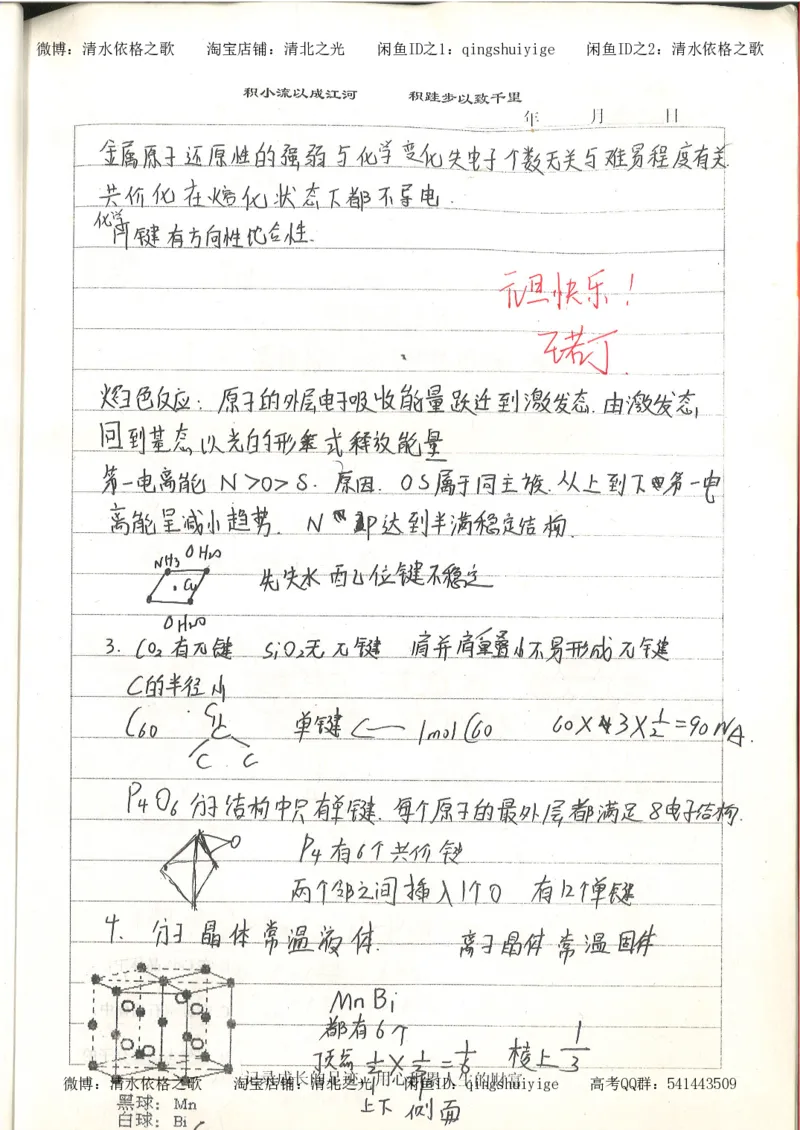 微博：清水依格之歌 淘宝店铺：清北之光 闲鱼ID之1：qingshuiyige 闲鱼ID之2：清水依格之歌
积小流以成江河 积跬步以致千里
年 月 日
金属原子还原性的强弱与化学变化失电子个数无关与难易程度有关
共价化在熔化状态下都不导电.
化学
键有方向性饱合性.
元旦快乐！
焰色反应：原子的外层电子吸收能量跃迁到激发态.由激发态,
回到基态以光的形式释放能量
第一电离能 N>O>S. 原因. OS属于同主族.从上到下 第一电
离能呈减小趋势. N 达到半满稳定结构.
NH3 OH2O
Cu 先失水 两配位键不稳定
OH2O
3. CO2有π键 SiO2无π键 肩并肩重叠小不易形成π键
C的半径小
C60 C C C C 单键 C— 1mol C60 60×3×1/2=90NA.
P4O6分子结构中只有单键.每个原子的最外层都满足8电子结构.
O P4有6个共价键
两个邻之间插入1个O 有12个单键
4. 分子晶体常温液体. 离子晶体常温固体
MnBi
都有6个
顶点 1/2×1/3=1/6 棱上 1/3
记录成长的足迹
微博：清水依格之歌 淘宝店铺：清北之光 闲鱼ID：qingshuiyige 高考QQ群：541443509
黑球：Mn 上下 侧面
白球：Bi